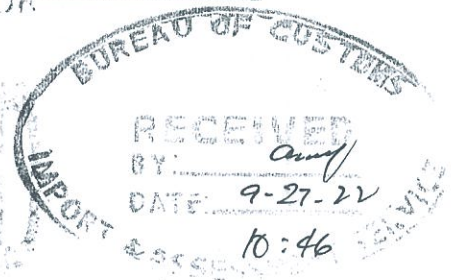 BUREAU OF CUSTOMS
RECEIVED
BY:
DATE: 9-27-22
10:46
IMPORT &